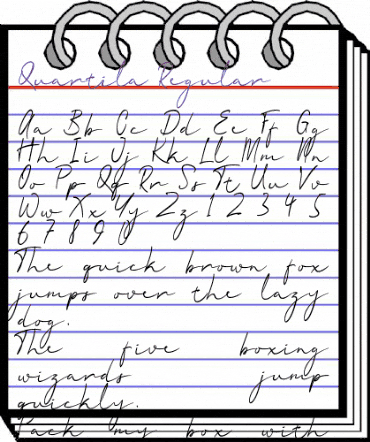 Quartila Regular
Aa Bb Cc Dd Ee Ff Gg
Hh Ii Jj Kk Ll Mm Nn
Oo Pp Qq Rr Ss Tt Uu Vv
Ww Xx Yy Zz 1 2 3 4 5
6 7 8 9 0
The quick brown fox
jumps over the lazy
dog.
The five boxing
wizards jump
quickly.
Pack my box with